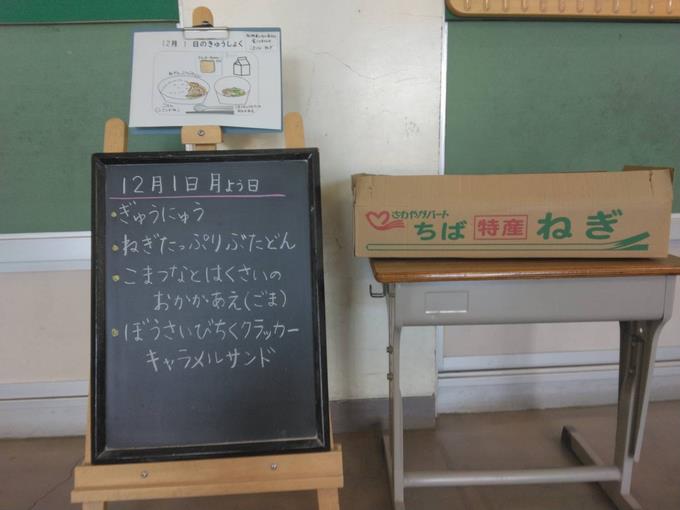 12月1日のきゅうしょく
12月1日月よう日
ぎゅうにゅう
ねぎたっぷりぶたどん
こまつなとはくさいの
おかかあえ(ごま)
ぼうさいびちくクラッカー
キャラメルサンド
さわやかハート
ちば 特産 ねぎ